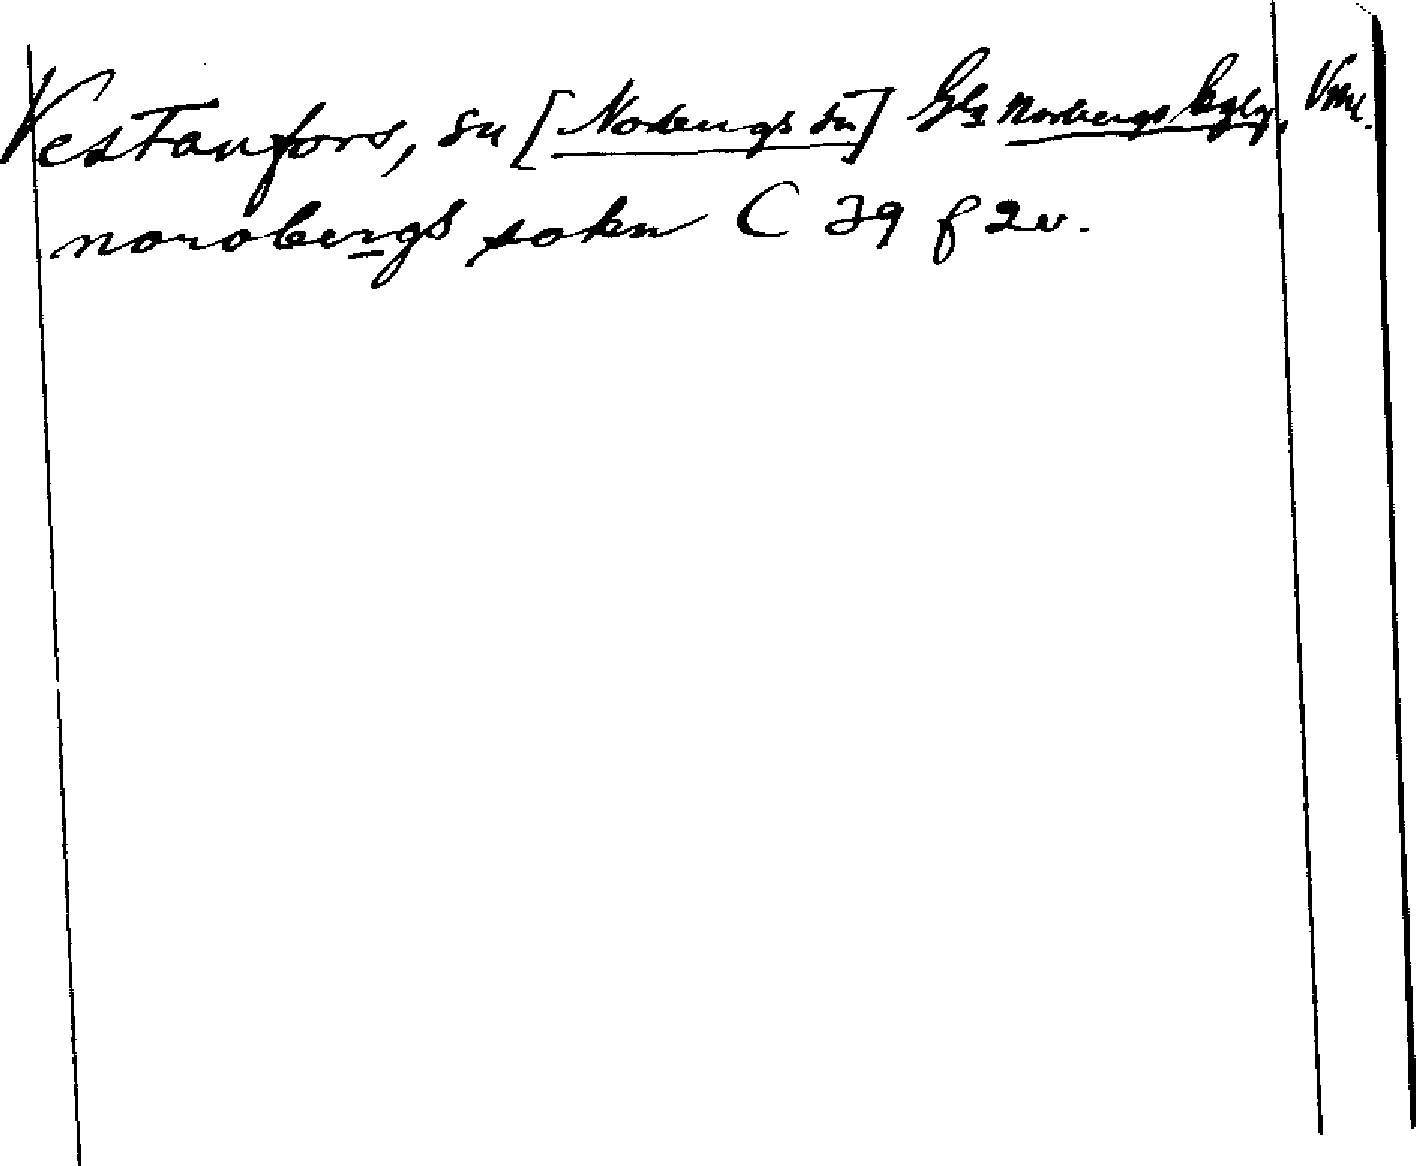 Vestanfors, sn [Norbergs sn] Gls Norbergs bglg, Vml.
norobergs sokn C 39 f 2v.